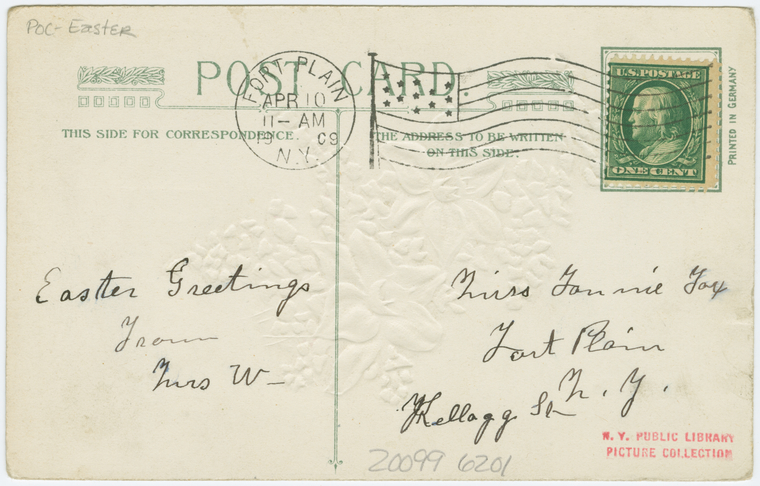 POC - Easter
POST CARD.
FORT PLAIN
APR 10
11 - AM
19 09
N.Y.
U.S. POSTAGE
ONE CENT
PRINTED IN GERMANY
THIS SIDE FOR CORRESPONDENCE.
THE ADDRESS TO BE WRITTEN
ON THIS SIDE.
Easter Greetings
From
Mrs W-
Miss Fannie Fox
Fort Plain
N. Y.
Kellogg St
N. Y. PUBLIC LIBRARY
PICTURE COLLECTION
20099 6201